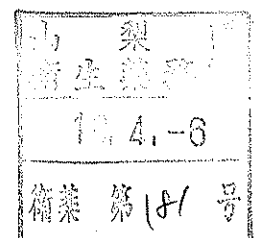 山梨
衛生薬務
1 4.-6
衛薬 第181号